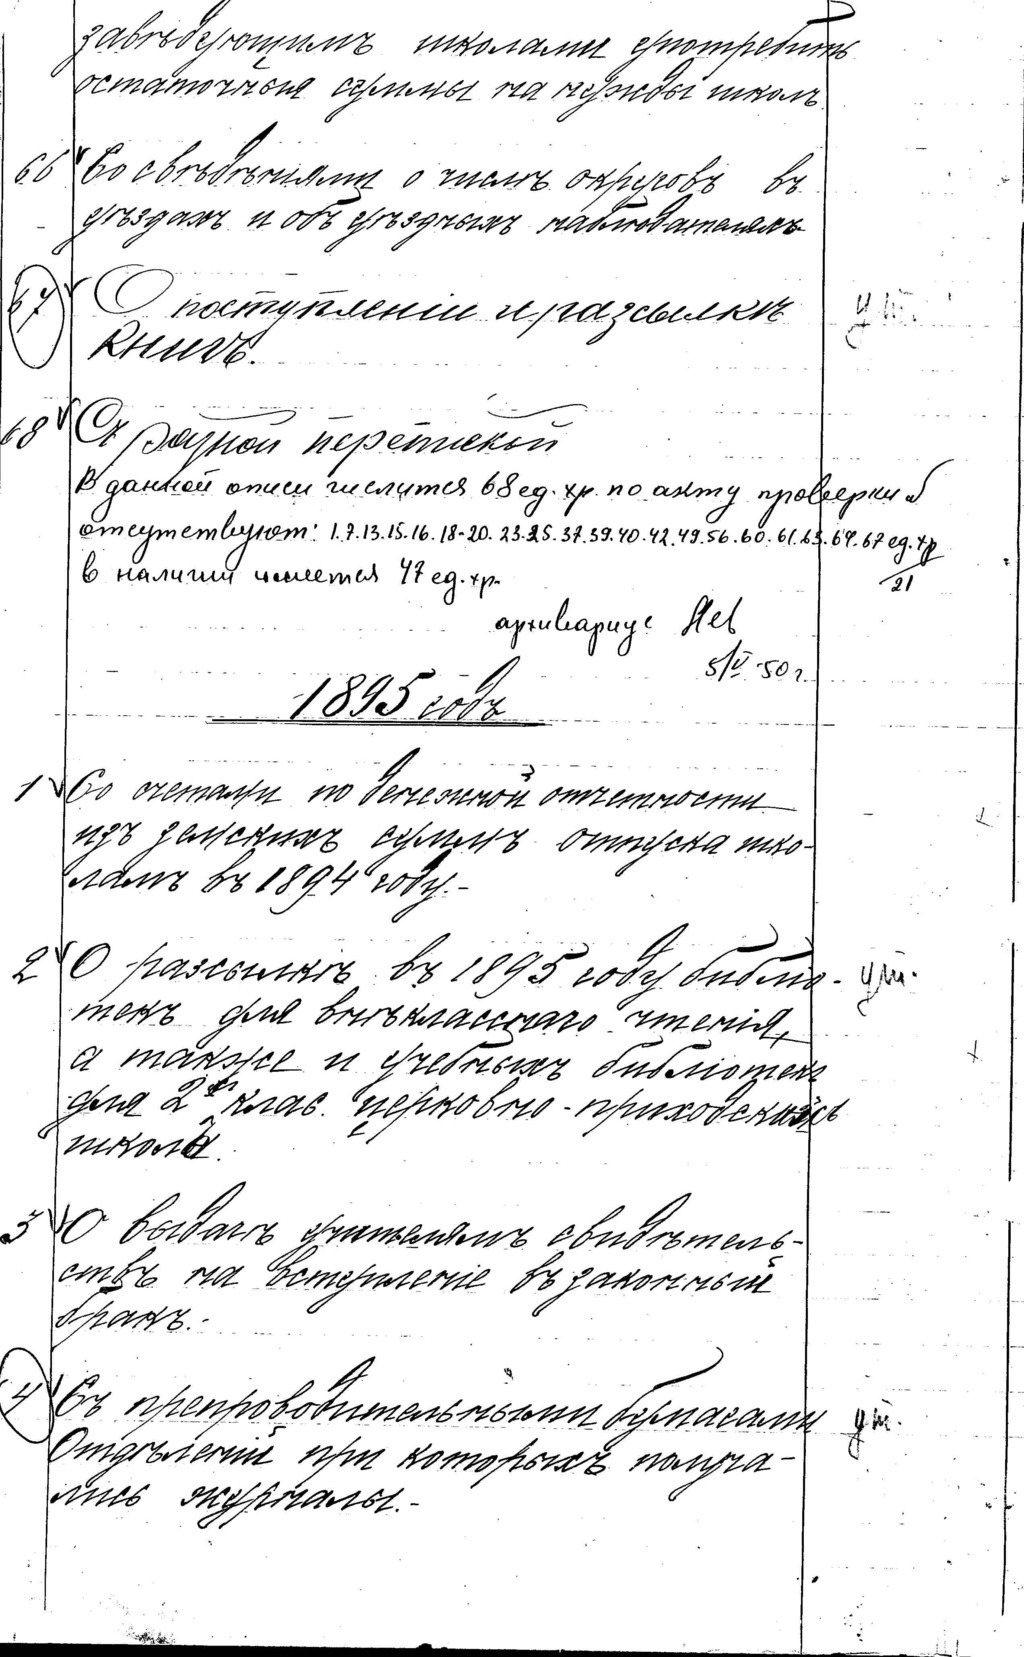 завѣдующимъ школами употребить
остаточныя суммы на нужды школъ
66 Со свѣдѣніями о числѣ округовъ въ
уѣздахъ и объ уѣздныхъ наблюдателяхъ
67 О поступленіи и разсылкѣ ут.
книгъ.
68 Съ разной перепиской
В данной описи числится 68 ед. хр. по акту проверки
отсутствуют: 1.7.13.15.16.18-20.23.25.37.39.40.42.49.56.60.61.63.64.67 ед. хр
21
в наличии имеется 47 ед. хр.
архивариус
5/V-50 г.
1895 годъ
1 Со счетами по денежной отчетности
изъ земскихъ суммъ отпуска шко-
ламъ въ 1894 году.-
2 О разсылкѣ въ 1895 году библіо- ут.
текъ для внѣкласснаго чтенія,
а также и учебныхъ библіотекъ
для 2х клас. церковно-приходскихъ
школъ.
3 О выдачѣ учителямъ свидѣтель-
ствъ на вступленіе въ законный
бракъ.-
4 Съ препроводительными бумагами ут.
Отдѣленій при которыхъ получа-
лись журналы.-